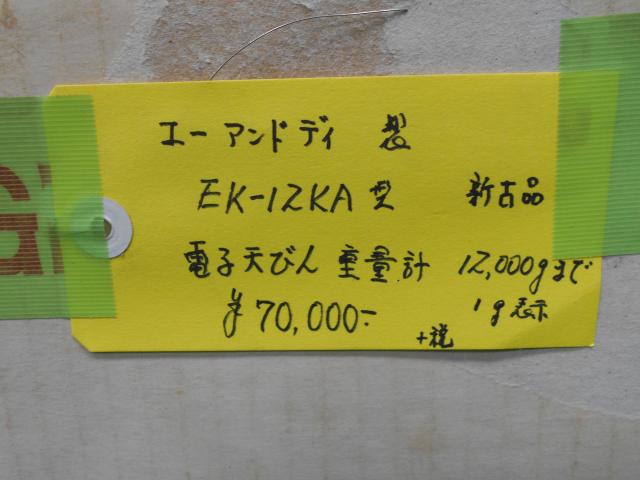 エー アンド デイ 製
EK-12KA 型 新古品
電子天びん 重量計 12,000gまで
¥70,000-
1g 表示
+税